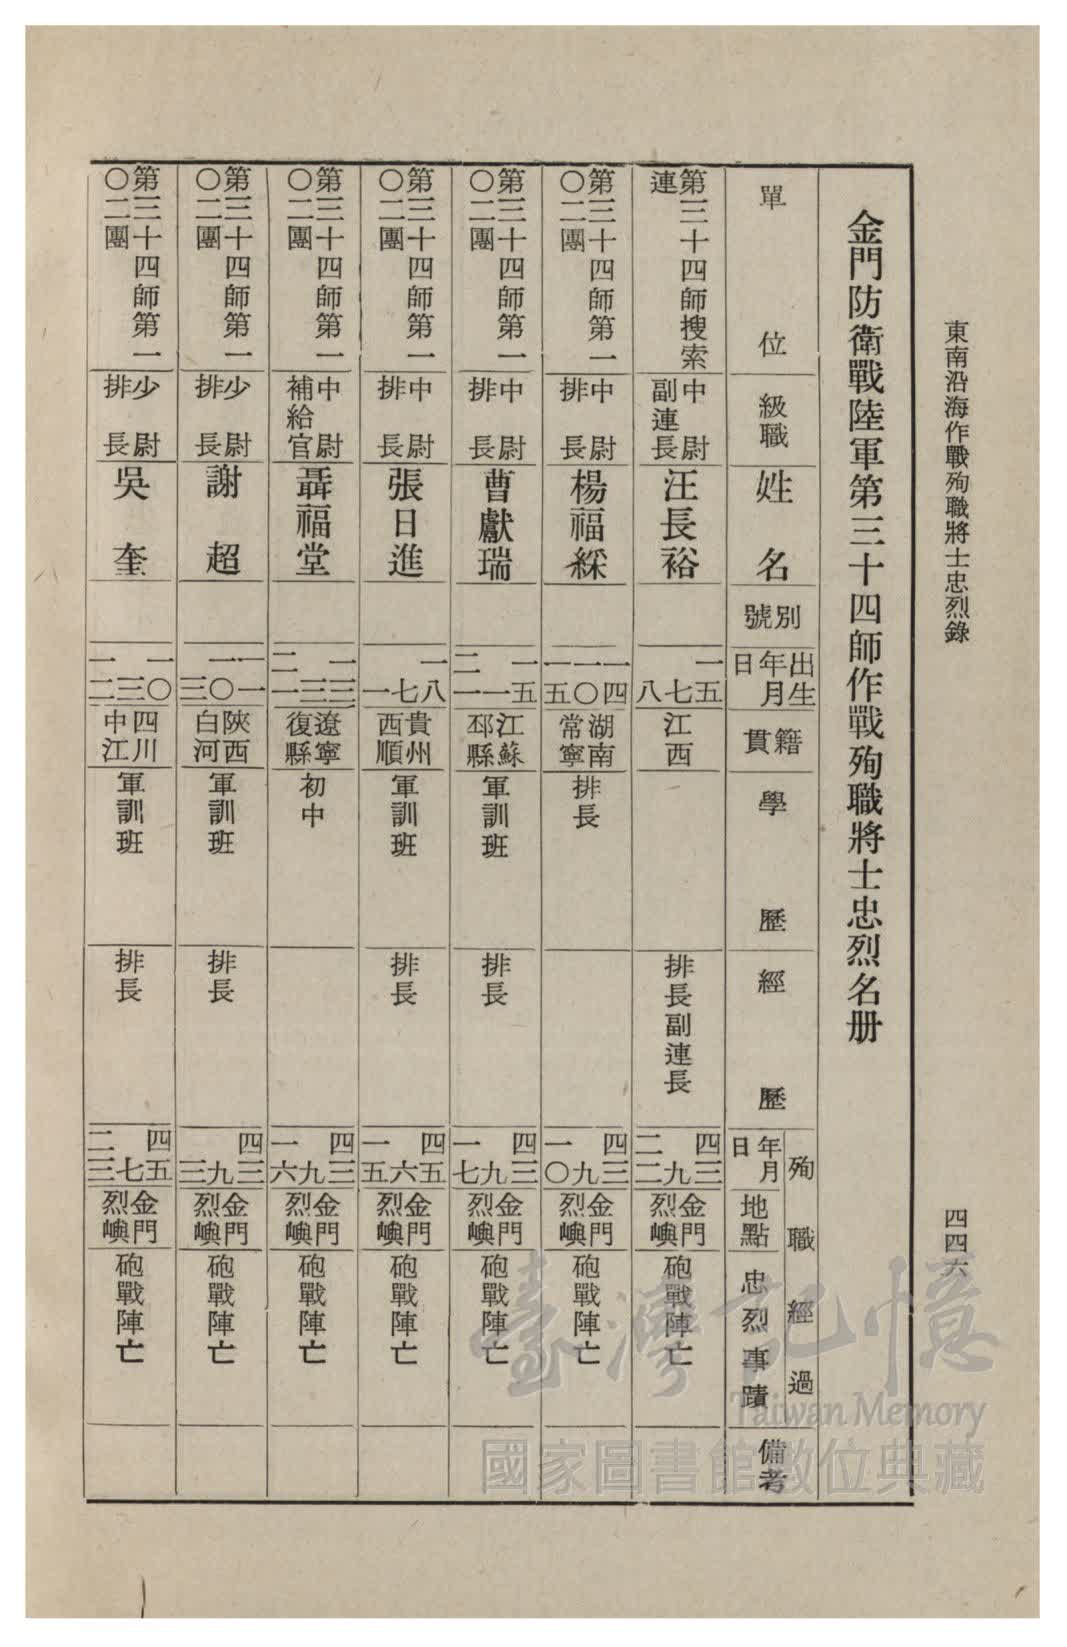 東南沿海作戰殉職將士忠烈錄
四四六
金門防衛戰陸軍第三十四師作戰殉職將士忠烈名册
單位
級職
姓名
別號
出生
年月
日
籍貫
學歷
經歷
殉職經過
年月
日
地點
忠烈事蹟
備考
第三十四師搜索
連
中尉
副連長
汪長裕
一五
七
八
江西
排長副連長
四三
九
二二
金門
烈嶼
砲戰陣亡
第三十四師第一
〇二團
中尉
排長
楊福綵
一四
一〇
一五
湖南
常寧
排長
四三
九
一〇
金門
烈嶼
砲戰陣亡
第三十四師第一
〇二團
中尉
排長
曹獻瑞
一五
一
二一
江蘇
邳縣
軍訓班
排長
四三
九
一七
金門
烈嶼
砲戰陣亡
第三十四師第一
〇二團
中尉
排長
張日進
一八
七
一
貴州
西順
軍訓班
排長
四五
六
一五
金門
烈嶼
砲戰陣亡
第三十四師第一
〇二團
中尉
補給官
聶福堂
一三
三
二一
遼寧
復縣
初中
四三
九
一六
金門
烈嶼
砲戰陣亡
第三十四師第一
〇二團
少尉
排長
謝超
一一
一〇
三
陝西
白河
軍訓班
排長
四三
九
三
金門
烈嶼
砲戰陣亡
第三十四師第一
〇二團
少尉
排長
吳奎
一〇
三
一二
四川
中江
軍訓班
排長
四五
七
二三
金門
烈嶼
砲戰陣亡
臺灣記憶
Taiwan Memory
國家圖書館數位典藏